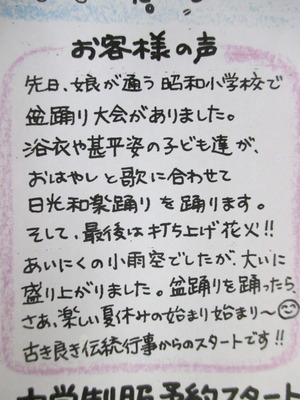 お客様の声
先日、娘が通う昭和小学校で
盆踊り大会がありました。
浴衣や甚平姿の子ども達が、
おはやしと歌に合わせて
日光和楽踊りを踊ります。
そして、最後は打ち上げ花火!!
あいにくの小雨空でしたが、大いに
盛り上がりました。盆踊りを踊ったら、
さあ、楽しい夏休みの始まり始まり～
古き良き伝統行事からのスタートです!!
中学制服予約スタート